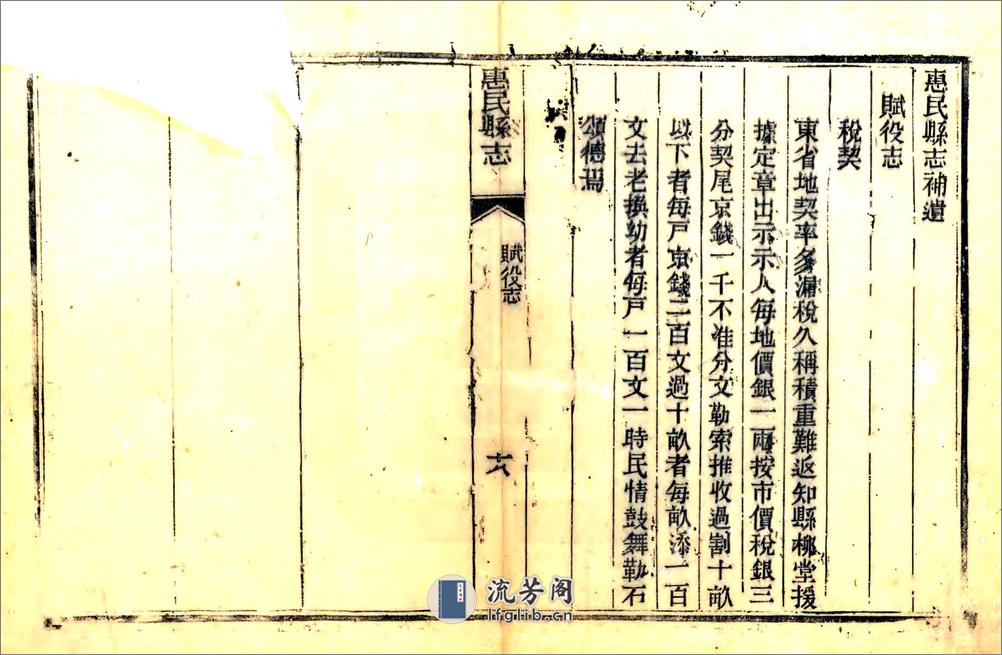 惠民縣志補遺
賦役志
稅契
東省地契率多漏稅久稱積重難返知縣柳堂援
據定章出示示人每地價銀一兩按市價稅銀三
分契尾京錢一千不准分文勒索推收過割十畝
以下者每戶京錢二百文過十畝者每畝添一百
文去老換幼者每戶一百文一時民情鼓舞勒石
頌德焉
惠民縣志
賦役志
十八
流芳阁
lfglib.cn